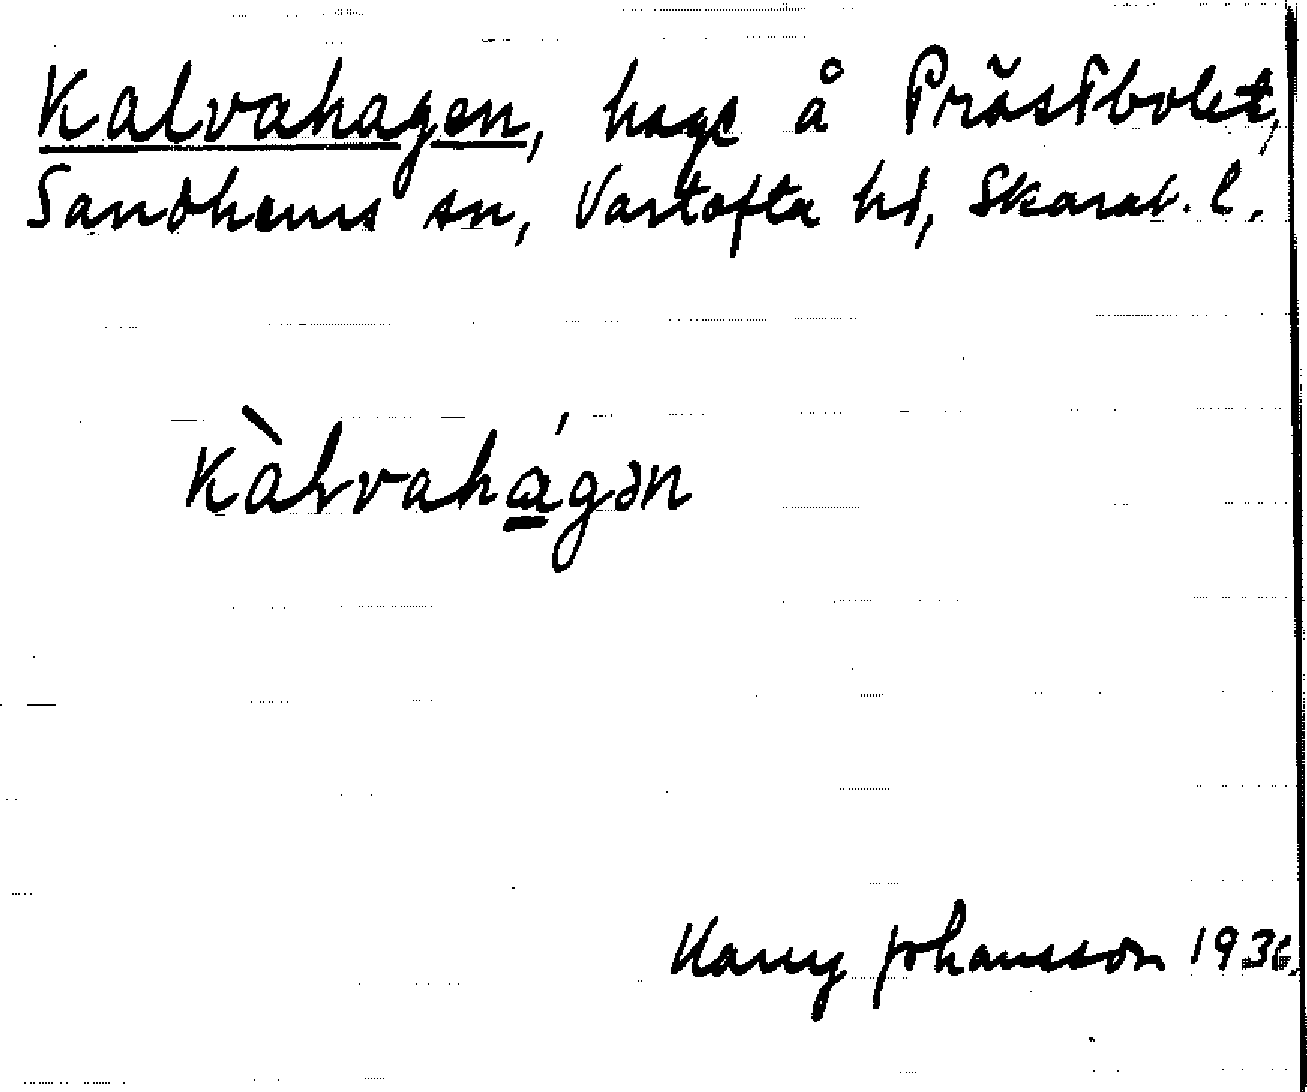 Kalvahagen, hage å Prästbolet,
Sandhems sn, Vartofta hd, Skarab. l.
Kàlvahágən
Harry Johansson 1936.